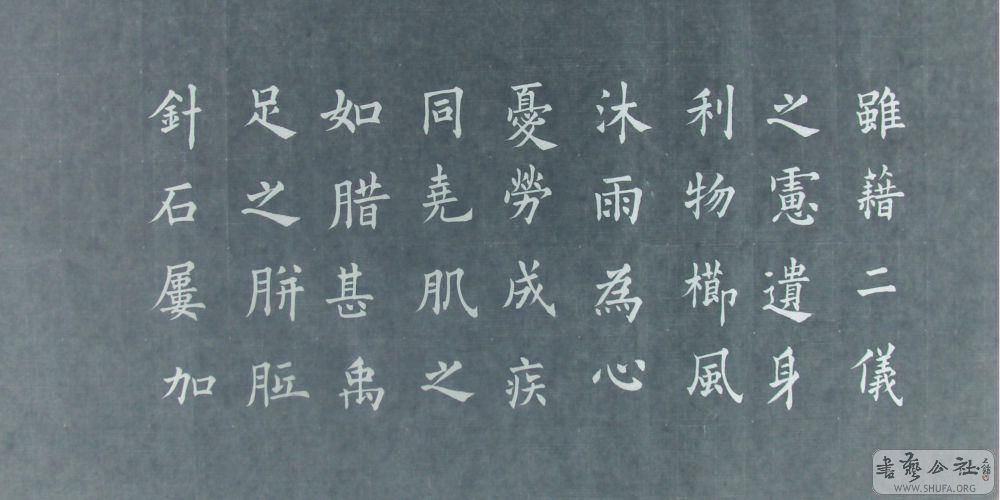 雖藉二儀
之憲遺身
利物櫛風
沐雨為心
憂勞成疾
同堯肌之
如腊甚禹
足之胼胝
針石屢加
書藝公社
WWW.SHUFA.ORG